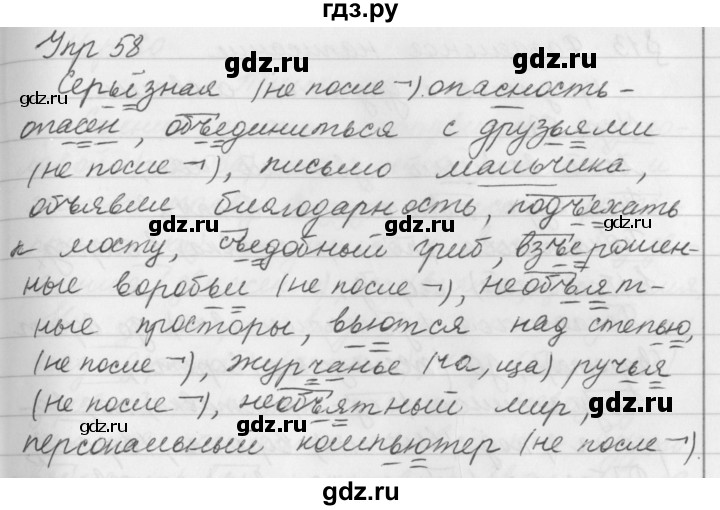 гдз.ру
Упр 58
Серьёзная (не после ¬). опасность -
опасен, объединиться с друзьями
(не после ¬), письмо мальчика,
объявили благодарность, подъехать
к мосту, съедобный гриб, взъерошен-
ные воробьи (не после ¬), необъят-
ные просторы, вьются над степью,
(не после ¬), журчанье (ча, ща) ручья
(не после ¬), необъятный мир,
персональный компьютер (не после ¬).
gdz.ru
gdz.ru
gdz.ru
gdz.ru
gdz.ru
gdz.ru
gdz.ru
gdz.ru
gdz.ru
gdz.ru
gdz.ru